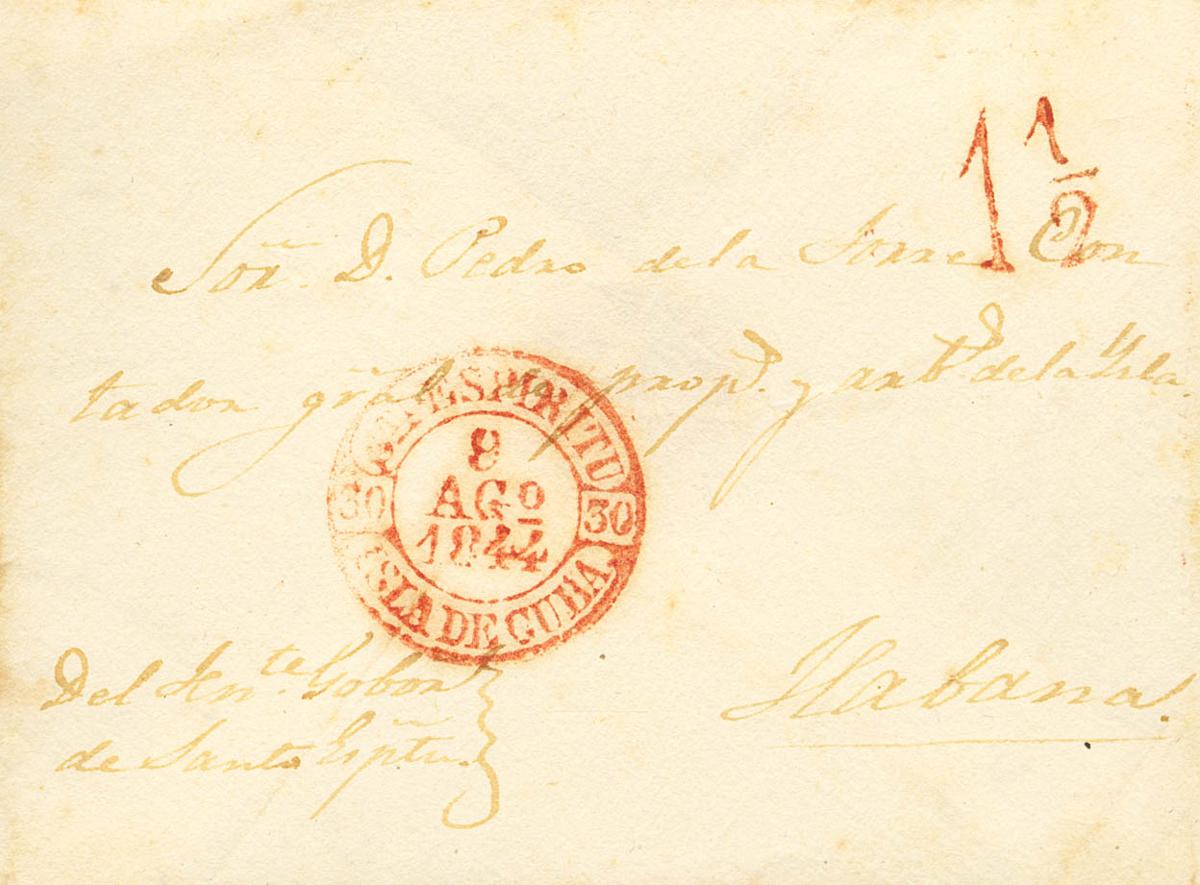 1 1/2
Sor. D. Pedro de la Torre Con
tador gral de prop.s y arb.s de la Ysla
S.TI-ESPIRITU
8
AGO
1844
30 30
ISLA DE CUBA
Del Ten.te Gobor
de Santo Esptu.
Habana.